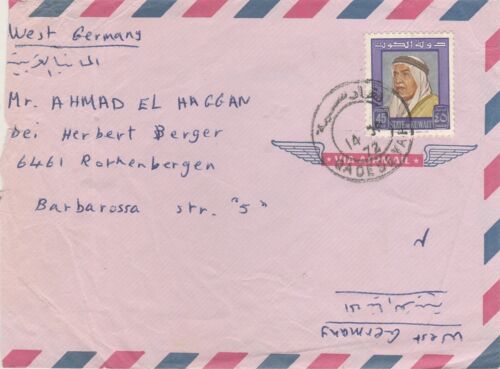 West Germany
المانيا الغربية
Mr. AHMAD EL HAGGAN
bei Herbert Berger
6461 Rothenbergen
Barbarossa str. "5"
دولة الكويت
45
STATE OF KUWAIT
٤٥
القادسية
14
72
QADESIYAH
VIA AIRMAIL
West Germany
المانيا الغربية